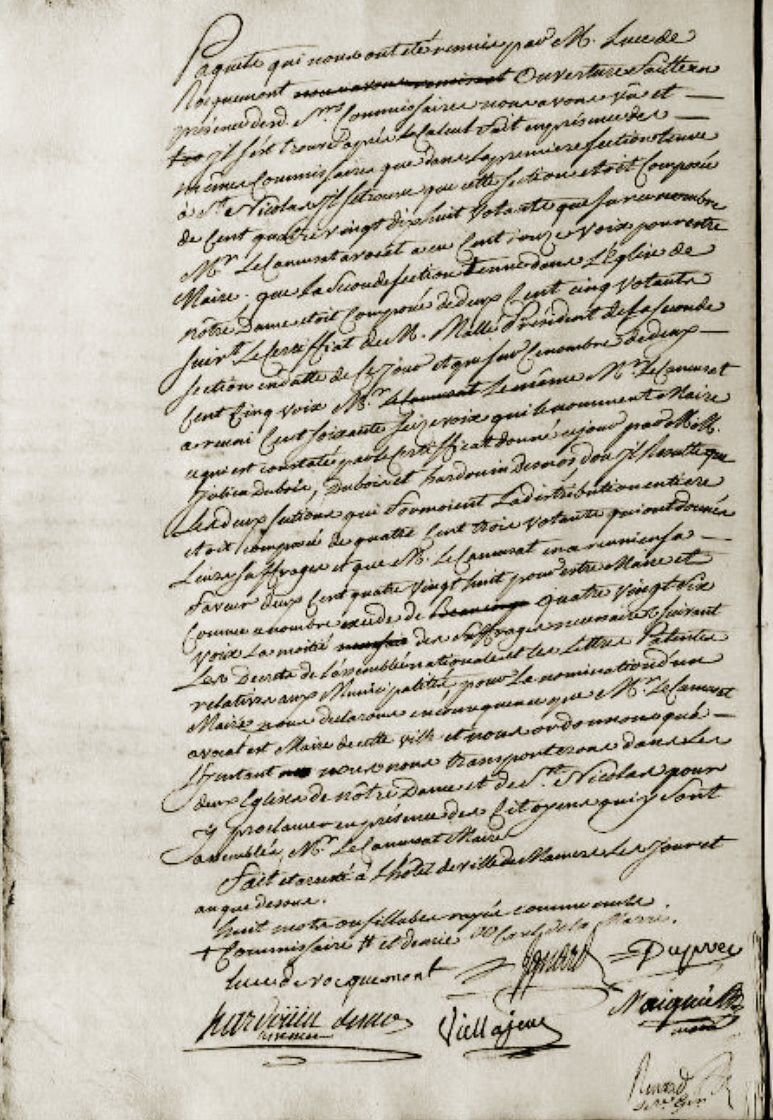 Paquets qui nous ont été remis par M. Luce de
Rocquemont nous avons Ouverture faitte en
présence desd. Srs Commissaires nous avons vû et
Il s'est trouvé après le Calcul fait en présence des
mêmes Commissaires que dans la premiere section tenue
à St Nicolas Il se trouve que cette section etoit Composée
de Cent quatre vingt dix huit Votants que sur ce nombre
Mr. Le Camusat avocat a eu Cent douze Voix pour estre
Maire. que La Seconde section tenue dans L'Eglise de
notre Dame etoit Composée de deux Cent cinq Votants
suivt Le Certifficat de M. Mallé Président de la seconde
section en datte de ce jour et que sur Ce nombre de deux
Cent Cinq voix Mr. Le même Mr Le Camusat
a reuni Cent soixante seize voix qui le nomment Maire
ce qui est constaté par le Certifficat donné ce jour par MM.
Julien Dubois, Dubois et hardouin Desnos d'ou Il Resulte que
Les deux sections qui formoient La distribution entiere
etoit composé de quatre Cent trois Votants qui ont donnés
Leurs suffrages et que M. Le Camusat en a reuni en sa
faveur deux Cent quatre Vingt huit pour estre Maire et
Comme ce nombre excede de quatre Vingt six
voix La moitié des Suffrages necessaires suivant
Les Decrets de l'assemblée nationale et les Lettres Patentes
relatives aux Municipalités pour La nomination d'un
Maire nous declarons en consequence que Mr. Le Camusat
avocat est Maire de cette ville et nous ordonnons qu'à
l'Instant nous nous transporterons dans Les
deux Eglises de notre Dame et de St. Nicolas pour
y proclamer en présence des Citoyens qui y sont
assemblés, Mr. Le Camusat Maire
Fait et arresté à L'hotel de ville de Mamers Les jour et
an que dessus.
huit mots ou sillabes rayés comme nuls
+ Commissaire # et de
Luce de rocquemont
hardouin desnos
Viellajeux